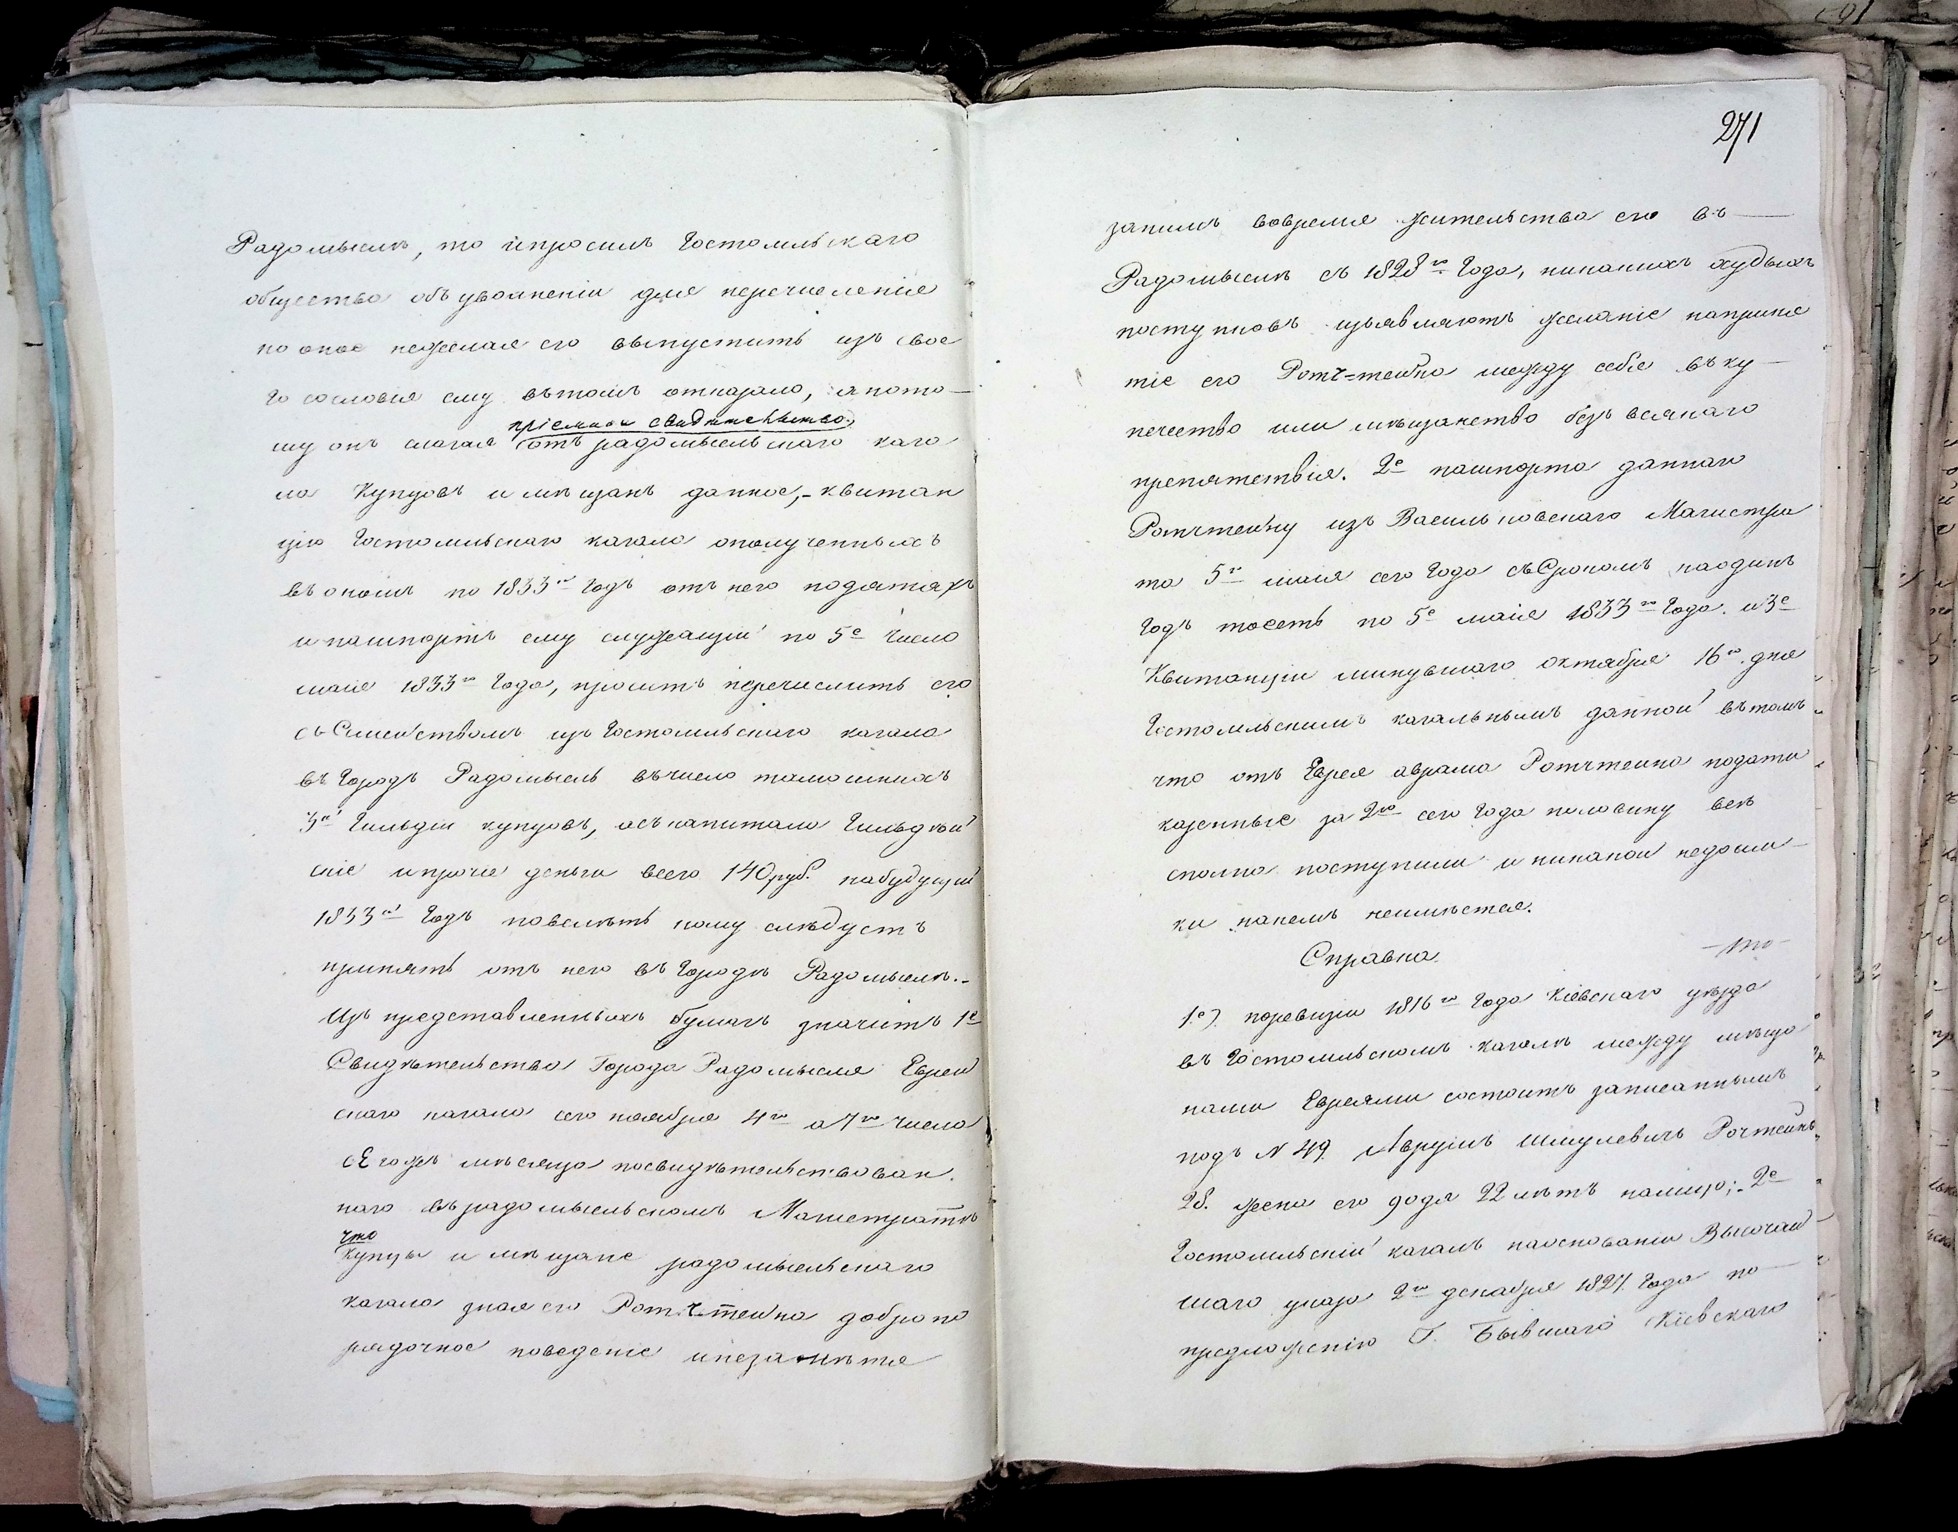 Радомыслѣ, то и просилъ Гостомльскаго
общества объ уволненіи для перечисленія
но оное нежелая его выпустить изъ свое
го сословія ему вътомъ отказало, апото-
пріемное свидѣтельство
му онъ слагая отъ радомысльскаго кага
ла купцовъ и мѣщанъ данное,- квитан
цію Гостомльскаго кагала ополученныхъ
въ ономъ по 1833й Годъ отъ него податяхъ
и пашпортъ ему служащій по 5е Число
маія 1833го Года, проситъ перечислить его
съ Семействомъ изъ Гостомльскаго кагала
въ Городъ Радомысль въчисло тамошнихъ
3й Гильдіи купцовъ, асъ капитала Гильдей
скіе ипрочіе деньги всего 140 руб. набудущій
1833й Годъ повелѣть кому слѣдуетъ
принять отъ него въ Городѣ Радомыслѣ.-
Изъ представленныхъ бумагъ значитъ 1е
Свидѣтельства Города Радомысля Еврей
скаго кагала сего ноября 4го а 7го Числа
сего жъ мѣсяца посвидѣтельствован.
наго въ радомысльскомъ Магистратѣ
что
купцы и мѣщане радомысльскаго
кагала зная его Ротчтейна добропо
рядочное поведеніе инезамѣтя
271
занимъ вовремя жительства его въ
Радомыслѣ съ 1828го Года, никакихъ худыхъ
поступковъ изъявляютъ желаніе наприня
тіе его Ротч=тейна между себя въку-
печество или мѣщанство безъ всякаго
препятствія. 2е пашпорта даннаго
Ротчтейну изъ Васильковскаго Магистра
та 5го маія сего Года съ Срокомъ наодинъ
Годъ тоесть по 5е маія 1833го Года. и 3е
Квитанціи минувшаго октября 16го дня
Гостомльскимъ кагальнымъ данной вътомъ
что отъ Еврея аврама Ротчтейна подати
казенные за 2ю сего Года половину всѣ
сполна поступили и никакой недоим-
ки нанемъ неимѣется.
Справка. -то-
1е). поревизіи 1816го Года Кіевскаго уѣзда
въ Гостомльскомъ кагалѣ между мѣща
нами Евреями состоитъ записаннымъ
подъ N 49. Аврумъ Шмулевичъ Ротчтейнъ
28. жена его додя 22 лѣтъ налицо;- 2е
Гостомльскій кагалъ наоснованіи Высочай-
шаго указа 2го декабря 1827. Года по
предложенію Г. Бывшаго Кіевскаго